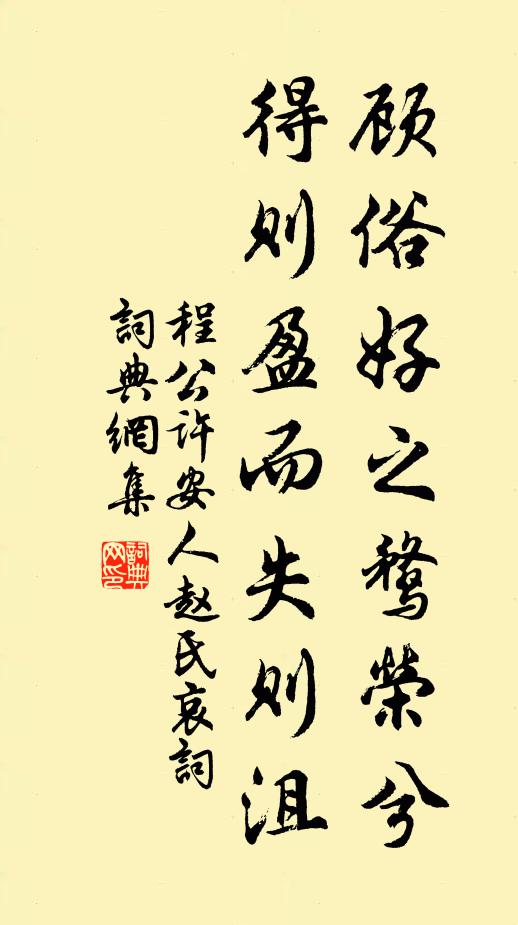 顾俗好之鹜榮兮
得则盈而失则沮
程公许安人赵氏哀詞
詞典網集
詞典网印